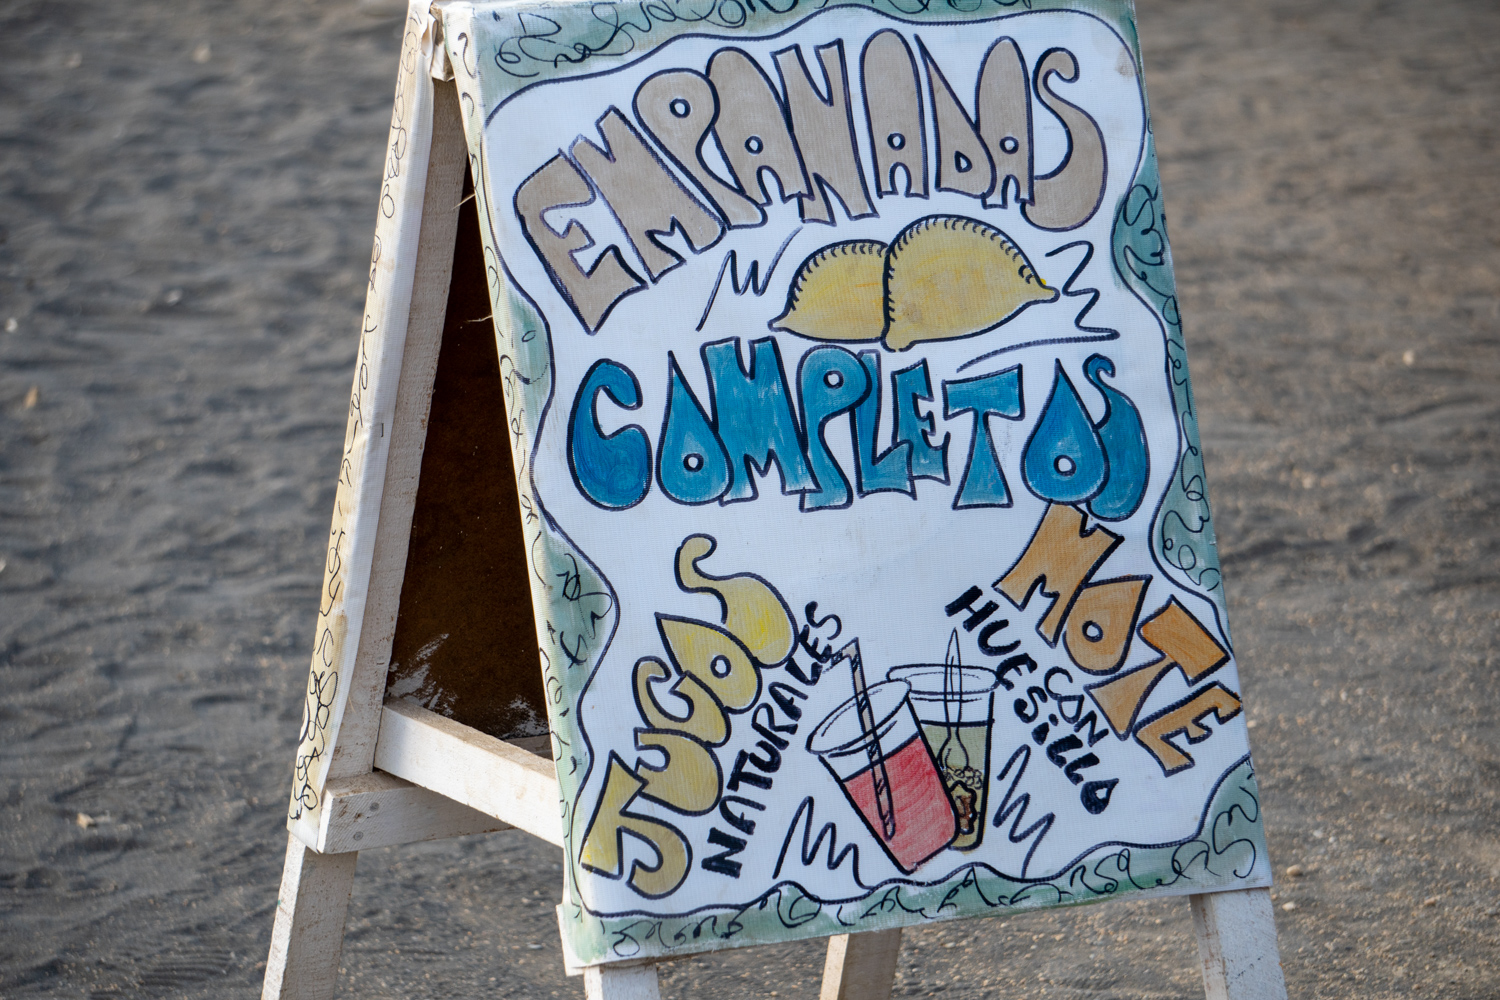 EMPANADAS
COMPLETOS
JUGOS
NATURALES
MOTE
CON
HUESillO